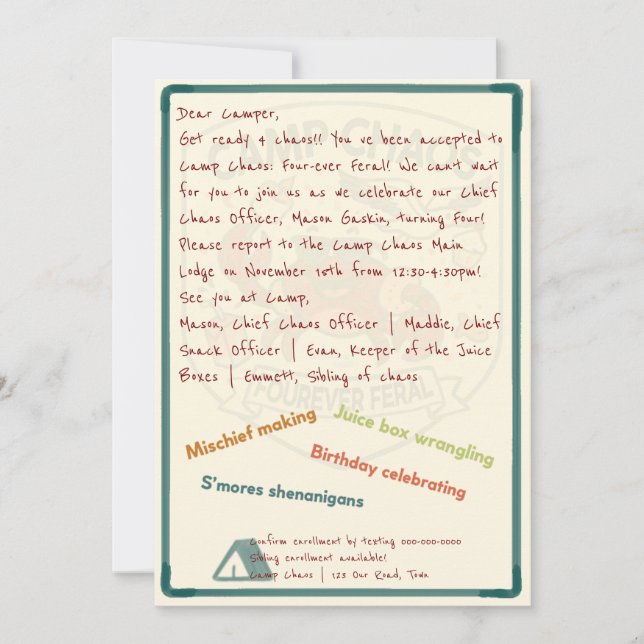 CAMP CHAOS
Dear Camper,
Get ready 4 chaos!! You ve been accepted to
Camp Chaos: Four-ever Feral! We can't wait
for you to join us as we celebrate our Chief
Chaos Officer, Mason Gaskin, turning Four!
Please report to the Camp Chaos Main
Lodge on November 15th from 12:30-4:30pm!
See you at Camp,
Mason, Chief Chaos Officer | Maddie, Chief
Snack Officer | Evan, Keeper of the Juice
Boxes | Emmett, Sibling of chaos
FOUREVER FERAL
Mischief making
Juice box wrangling
Birthday celebrating
S'mores shenanigans
Confirm enrollment by texting 000-000-0000
Sibling enrollment available!
Camp Chaos | 123 Our Road, Town